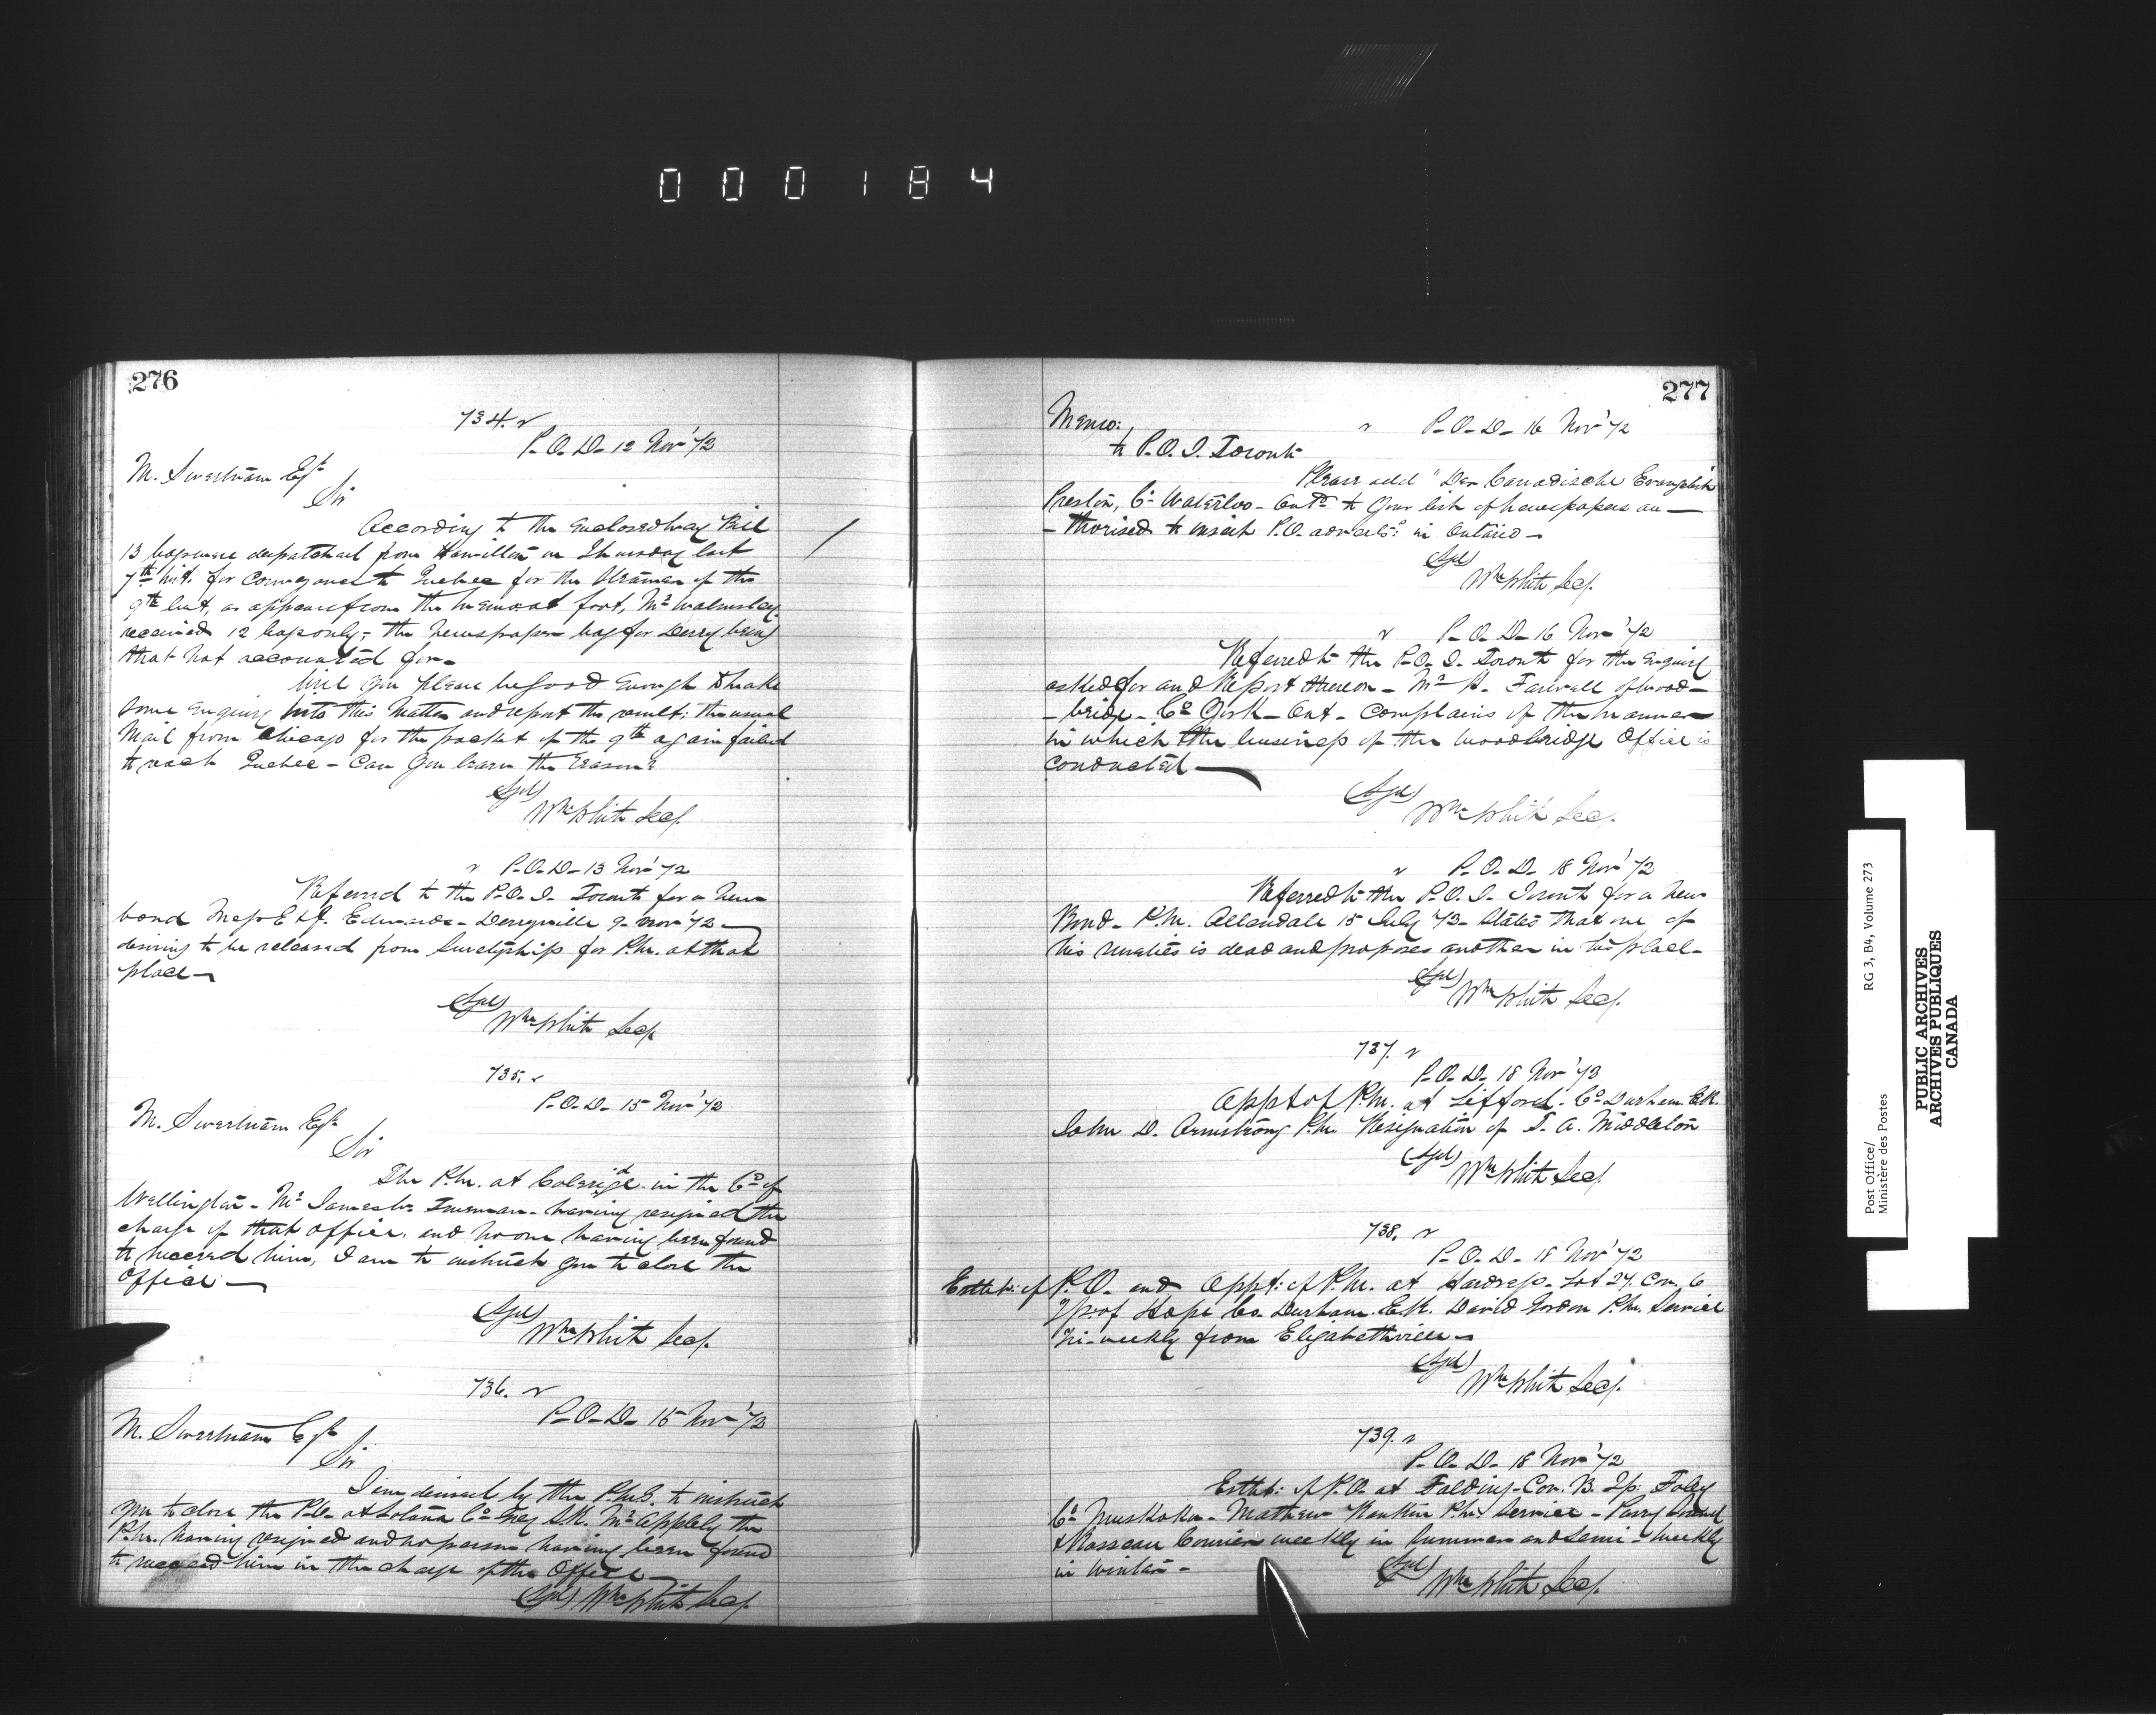 000184
276
734.
P.O.D. 12 Nov '72
M. Sweetnam Esq
Sir
According to the enclosed way Bill
13 bags were despatched from Hamilton on Thursday last
7th inst. for conveyance to Quebec for the Steamer of the
9th inst, as appears from the memo at foot, Mr Walmsley
received 12 bags only; the newspaper bag for Derry being
that not accounted for.
Will you please be good enough to make
some enquiry into this matter and report the result; the usual
Mail from Chicago for the packet of the 9th again failed
to reach Quebec - Can you learn the reason?
(Sgd)
Wm White Secy.
P.O.D. 13 Nov '72
Referred to the P.O.I. Toronto for a new
bond Messrs E & J. Edwards - 9 Nov '72 -
desiring to be released from Suretyship for P.M. at that
place -
(Sgd)
Wm White Secy
735.
P.O.D. 15 Nov '72
M. Sweetnam Esq
Sir
The P.M. at in the Co of
Wellington - Mr James - having resigned the
charge of that office, and no one having been found
to succeed him, I am to instruct you to close the
Office -
(Sgd)
Wm White Secy.
736.
P.O.D. 15 Nov '72
M. Sweetnam Esq
Sir
I am desired by the P.M.G. to instruct
you to close the P.O. at Co Grey S.R. Mr the
P.M. having resigned and no person having been found
to succeed him in the charge of the Office -
(Sgd) Wm White Secy.
277
Memo:
to P.O.I. Toronto
P.O.D. 16 Nov '72
Please add "Der Canadische Evangelist
Preston, Co Waterloo - Onto to your list of newspapers au-
-thorised to insert P.O. adverts: in Ontario -
(Sgd)
Wm White Secy.
P.O.D. 16 Nov '72
Referred to the P.O.I. Toronto for the enquiry
asked for and Report thereon - Mr A. Farwell of Wood-
-bridge - Co York - Ont - complains of the manner
in which the business of the Woodbridge Office is
conducted -
(Sgd)
Wm White Sec.
P.O.D. 18 Nov '72
Referred to the P.O.I. Toronto for a new
Bond - P.M. Allandale 15 July '72 - States that one of
his sureties is dead and proposes another in his place -
(Sgd)
Wm White Secy.
737.
P.O.D. 18 Nov '72
Appt of P.M. at Lifford. Co Durham E.R.
John D. Armstrong P.M. Resignation of A. Middleton
(Sgd)
Wm White Secy
738.
P.O.D. 18 Nov '72
Estab: of P.O. and Appt: of P.M. at Lot 27. Con. 6
Tp. of Hope Co. Durham. E.R. David Gordon P.M. Service
Tri-weekly from Elizabethville -
(Sgd)
Wm White Secy.
739.
P.O.D. 18 Nov '72
Estab: of P.O. at Falding - Con. B. Tp: Foley
Co Muskoka - Mathew Rankin P.M. Service - Parry Sound
& Rosseau Courier weekly in Summer and Semi-weekly
in Winter -
(Sgd)
Wm White Secy.
Post Office/
Ministère des Postes
RG 3, B4, Volume 273
PUBLIC ARCHIVES
ARCHIVES PUBLIQUES
CANADA